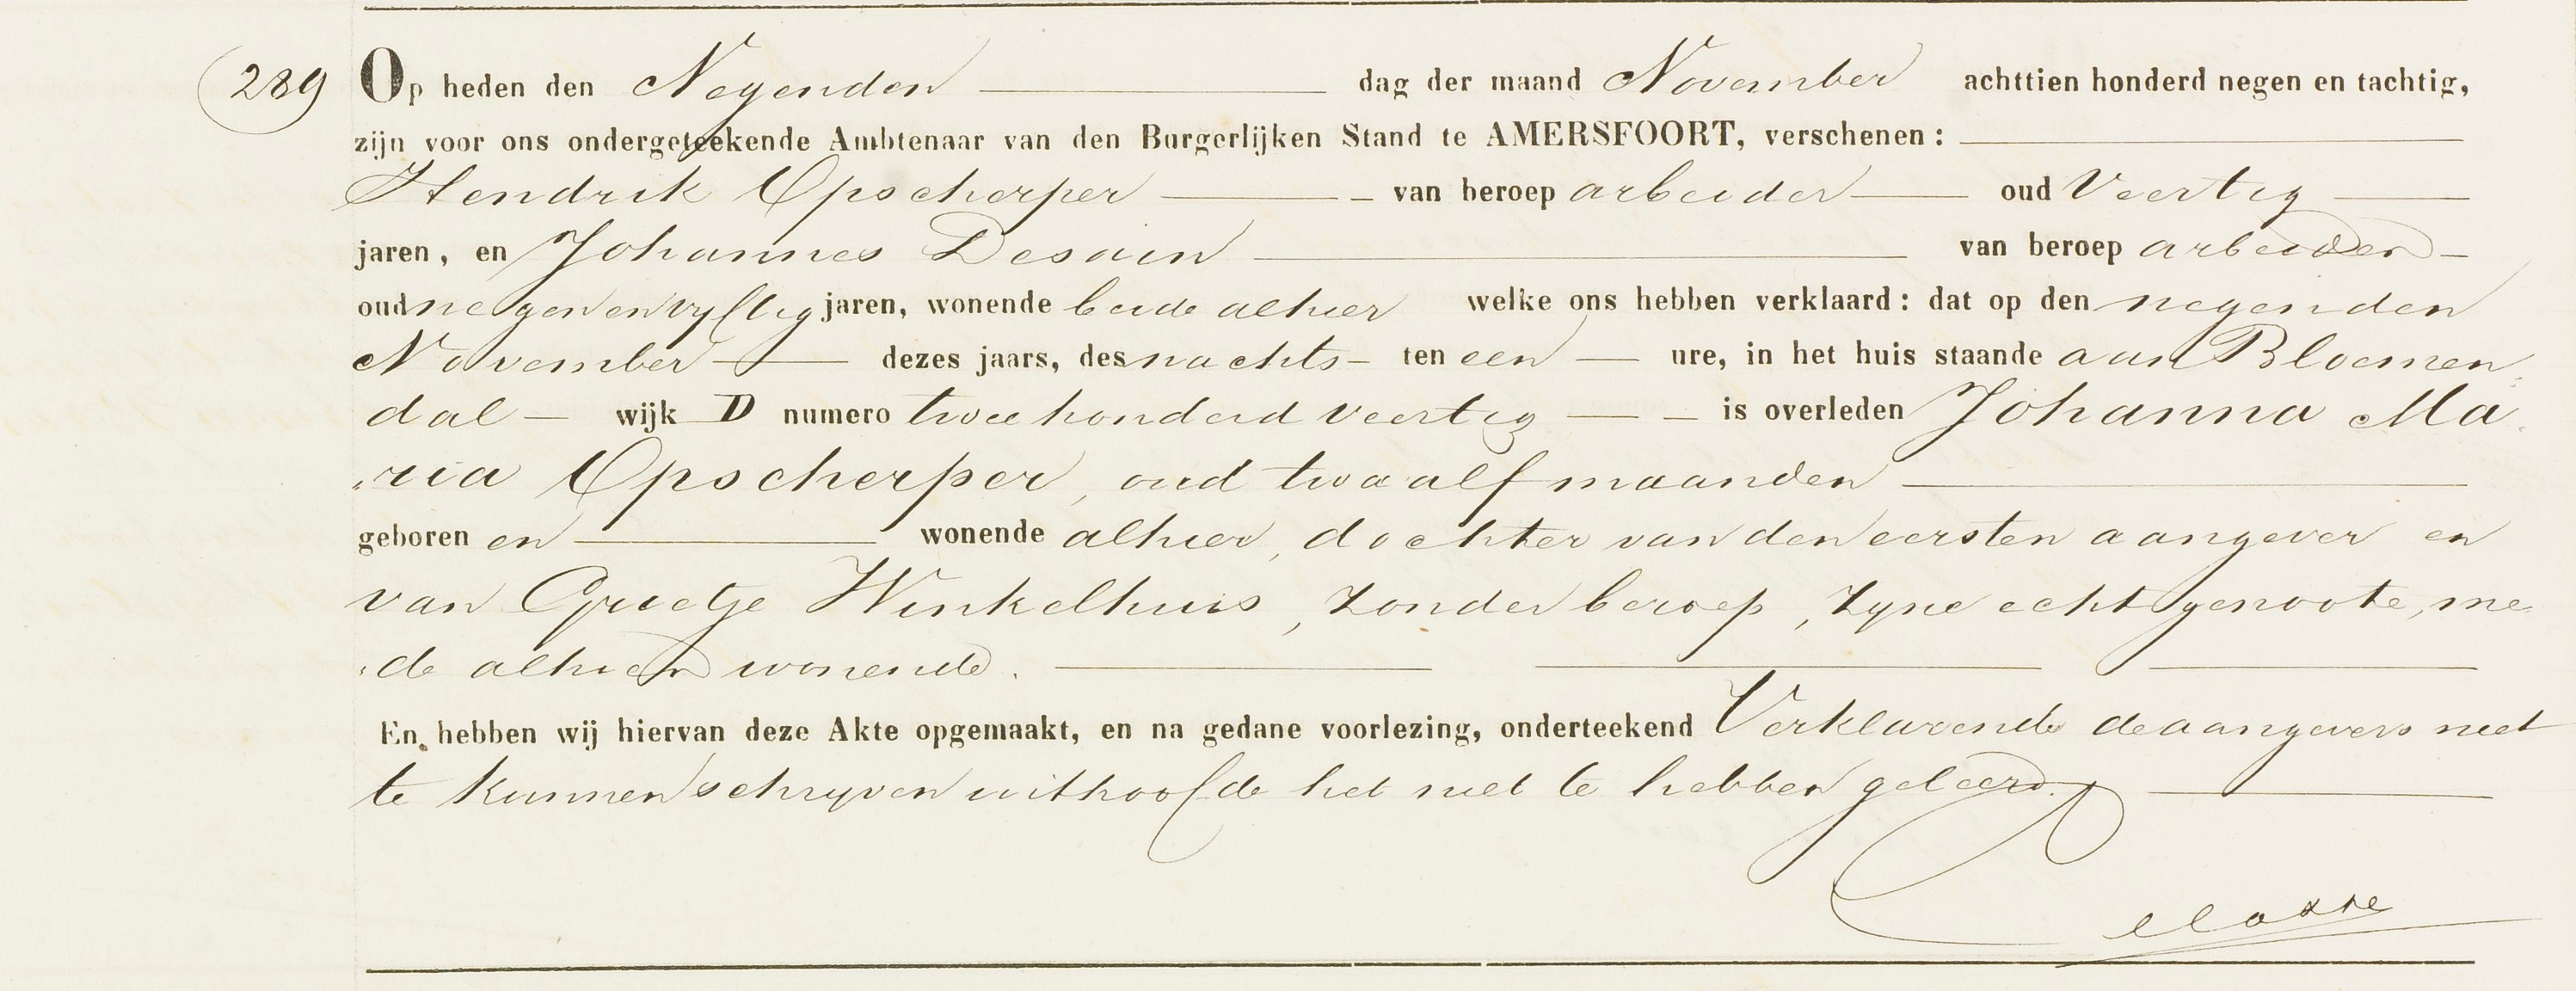 289 Op heden den Negenden dag der maand November achttien honderd negen en tachtig,
zijn voor ons ondergeteekende Ambtenaar van den Burgerlijken Stand te AMERSFOORT, verschenen:
Hendrik Opscherper van beroep arbeider oud Veertig
jaren, en Johannes Desain van beroep arbeider
oud negen en vyftig jaren, wonende beide alhier welke ons hebben verklaard: dat op den negenden
November dezes jaars, des nachts ten een ure, in het huis staande aan Bloemen
dal wijk D numero twee honderd veertig is overleden Johanna Ma
ria Opscherper, oud twaalf maanden
geboren en wonende alhier, dochter van den eersten aangever en
van Grietje Winkelhuis, zonder beroep, zyne echtgenoote, me
de alhier wonende.
En hebben wij hiervan deze Akte opgemaakt, en na gedane voorlezing, onderteekend Verklarende de aangevers niet
te kunnen schryven uithoofde het niet te hebben geleerd.